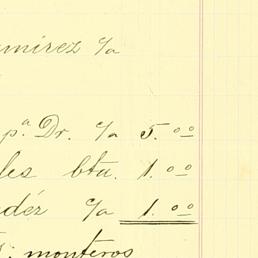 amírez c/a
p.ª Dr. c/a 5.00
les btu. 1.00
ndéz c/a 1.00
s: monteros